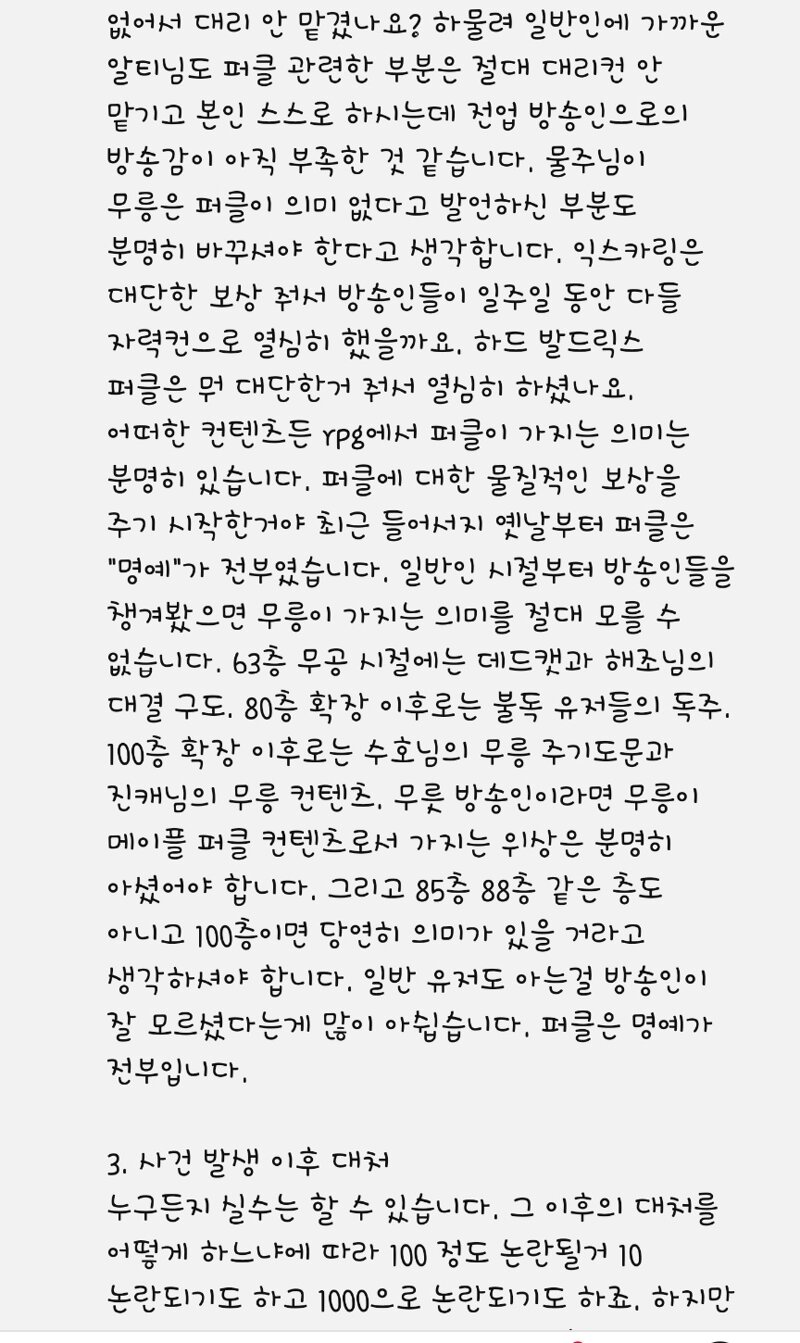 없어서 대리 안 맡겼나요? 하물려 일반인에 가까운
알티님도 퍼클 관련한 부분은 절대 대리컨 안
맡기고 본인 스스로 하시는데 전업 방송인으로의
방송감이 아직 부족한 것 같습니다. 물주님이
무릉은 퍼클이 의미 없다고 발언하신 부분도
분명히 바꾸셔야 한다고 생각합니다. 익스카링은
대단한 보상 줘서 방송인들이 일주일 동안 다들
자력컨으로 열심히 했을까요. 하드 발드릭스
퍼클은 뭐 대단한거 줘서 열심히 하셨나요.
어떠한 컨텐츠든 rpg에서 퍼클이 가지는 의미는
분명히 있습니다. 퍼클에 대한 물질적인 보상을
주기 시작한거야 최근 들어서지 옛날부터 퍼클은
"명예"가 전부였습니다. 일반인 시절부터 방송인들을
챙겨봤으면 무릉이 가지는 의미를 절대 모를 수
없습니다. 63층 무공 시절에는 데드캣과 해조님의
대결 구도. 80층 확장 이후로는 불독 유저들의 독주.
100층 확장 이후로는 수호님의 무릉 주기도문과
진캐님의 무릉 컨텐츠. 무릇 방송인이라면 무릉이
메이플 퍼클 컨텐츠로서 가지는 위상은 분명히
아셨어야 합니다. 그리고 85층 88층 같은 층도
아니고 100층이면 당연히 의미가 있을 거라고
생각하셔야 합니다. 일반 유저도 아는걸 방송인이
잘 모르셨다는게 많이 아쉽습니다. 퍼클은 명예가
전부입니다.
3. 사건 발생 이후 대처
누구든지 실수는 할 수 있습니다. 그 이후의 대처를
어떻게 하느냐에 따라 100 정도 논란될거 10
논란되기도 하고 1000으로 논란되기도 하죠. 하지만